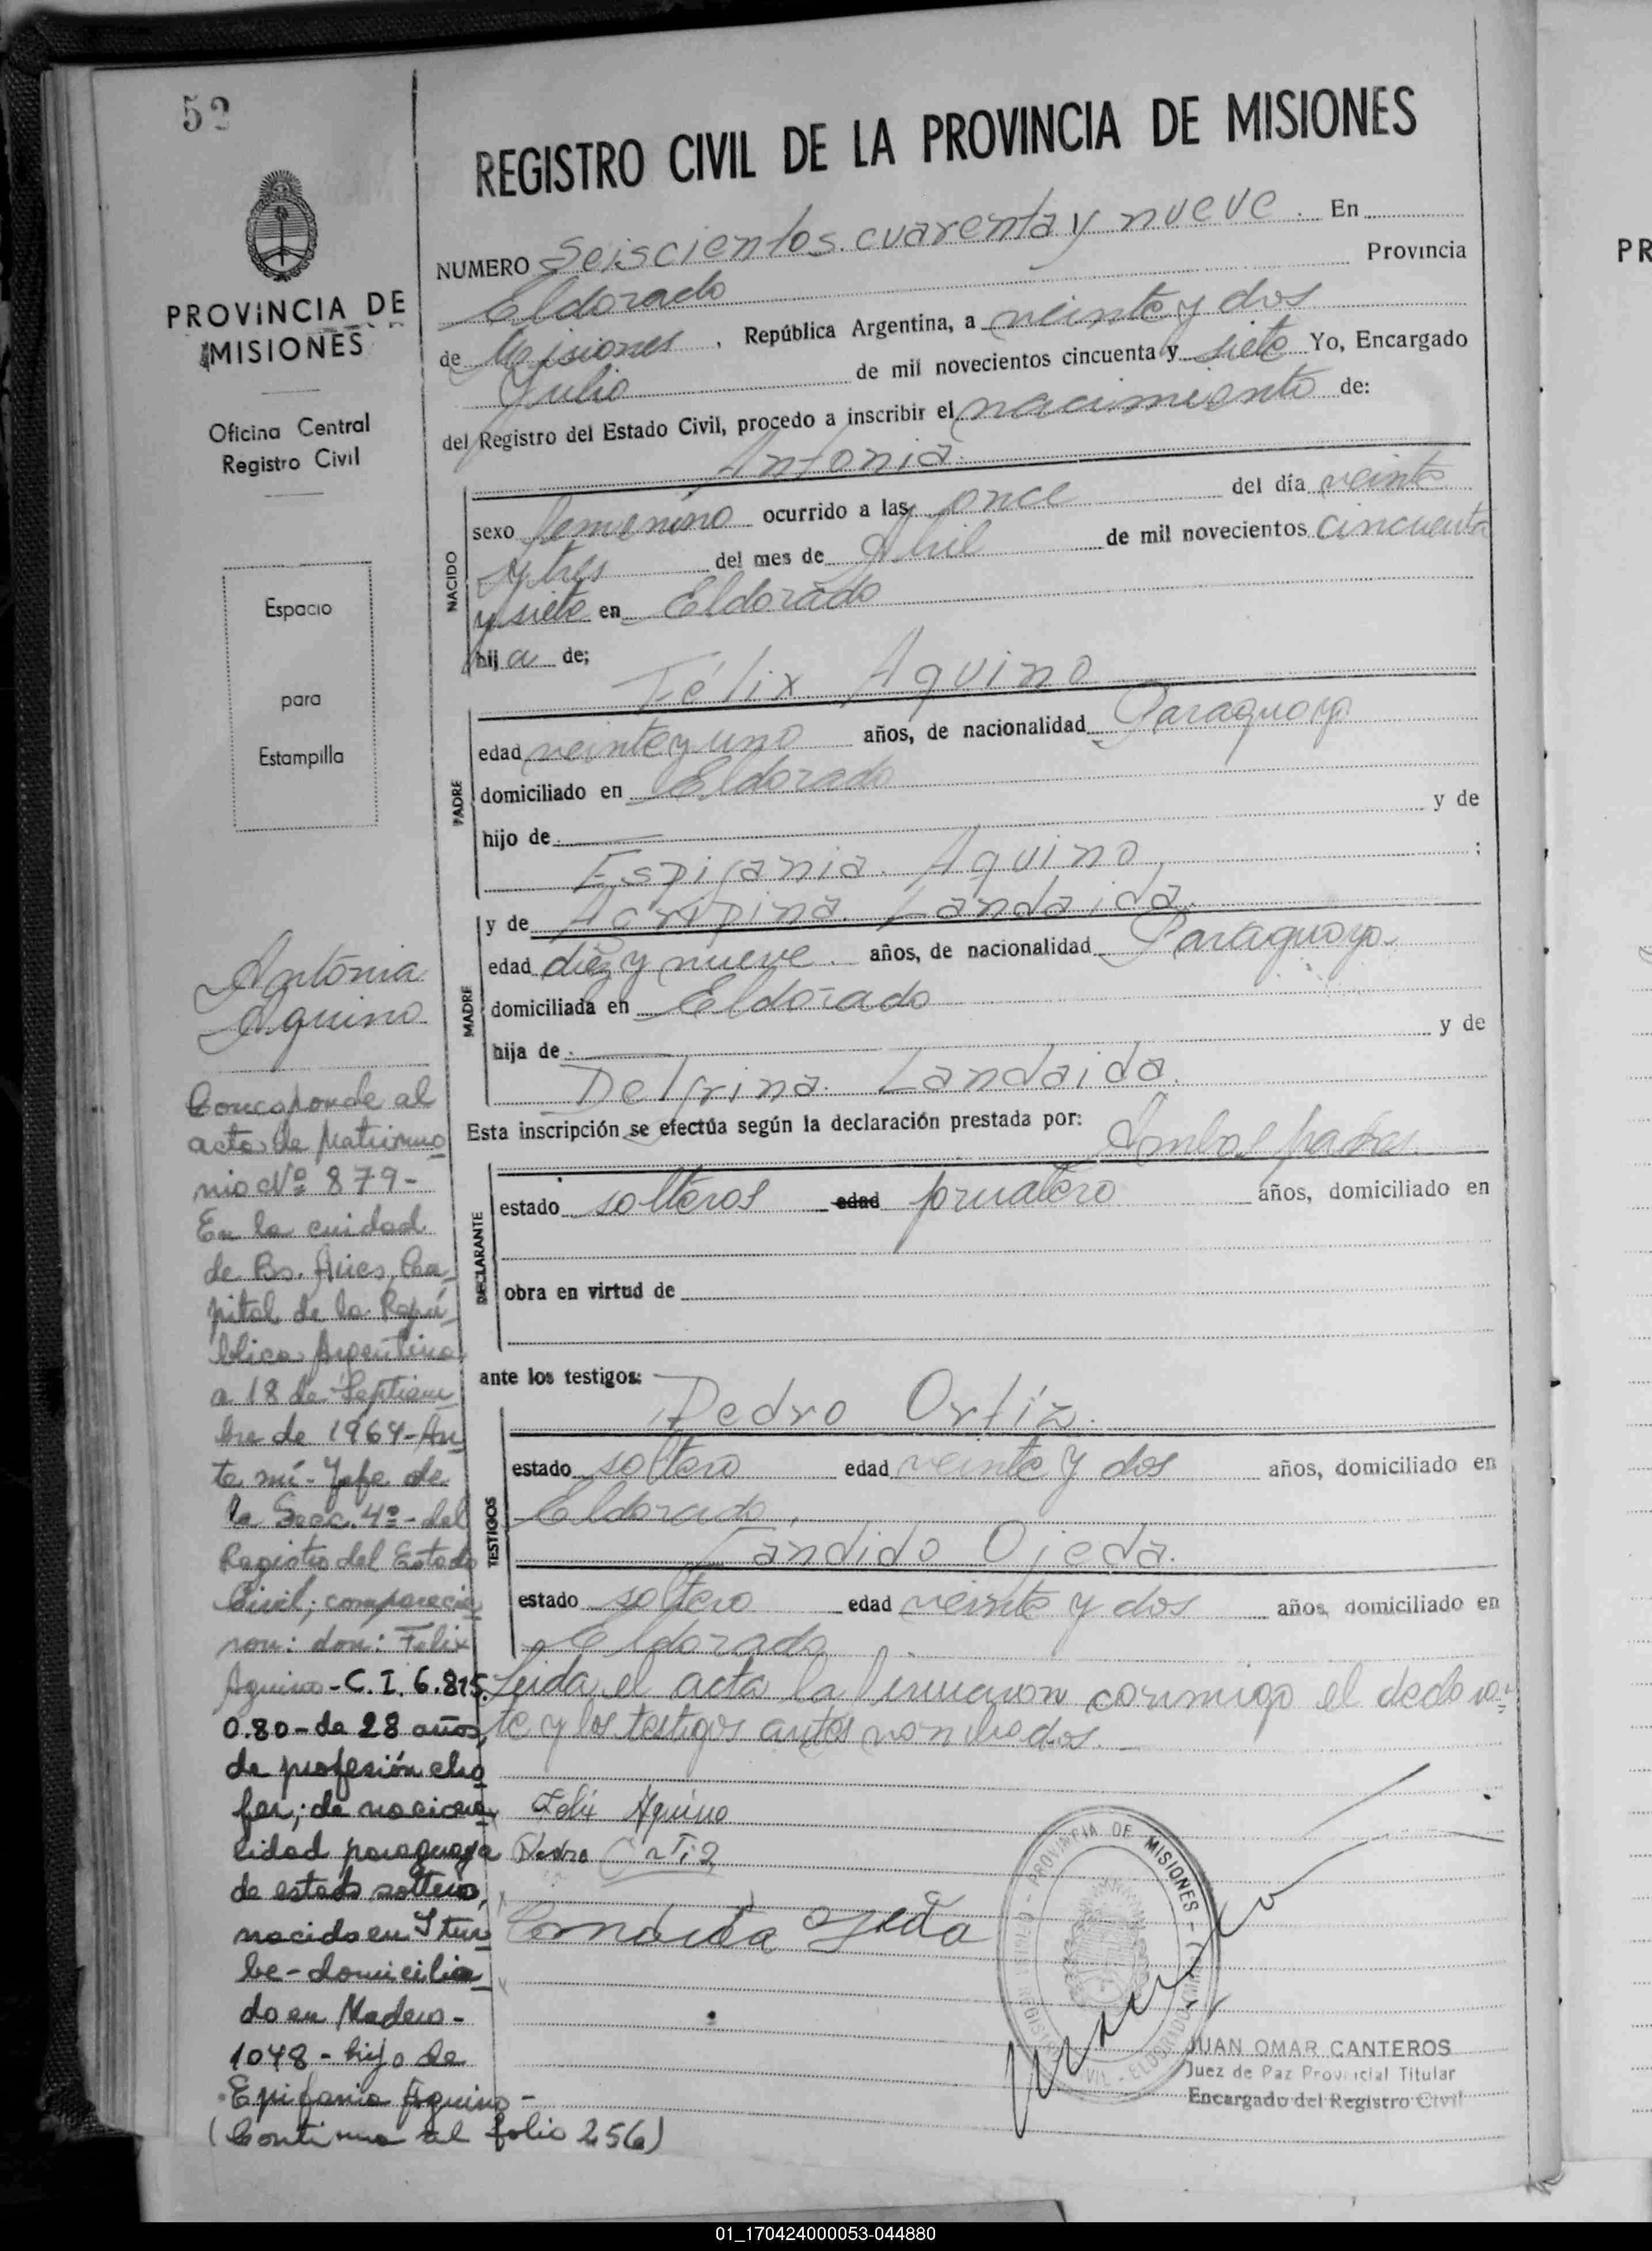 52
PROVINCIA DE
MISIONES
Oficina Central
Registro Civil
Espacio
para
Estampilla
REGISTRO CIVIL DE LA PROVINCIA DE MISIONES
NUMERO Seiscientos cuarenta y nueve. En
Eldorado Provincia
de Misiones, República Argentina, a veinte y dos
Julio de mil novecientos cincuenta y siete Yo, Encargado
del Registro del Estado Civil, procedo a inscribir el nacimiento de:
Antonia.
NACIDO
sexo femenino ocurrido a las once del día veinte
y tres del mes de Abril de mil novecientos cincuenta
y siete en Eldorado
hija de;
Félix Aquino
PADRE
edad veinte y uno años, de nacionalidad Paraguaya
domiciliado en Eldorado
hijo de y de
Espifania Aquino ;
y de Agripina Landaida.
MADRE
edad diez y nueve. años, de nacionalidad Paraguaya
domiciliada en Eldorado
hija de y de
Delfrina Landaida.
Esta inscripción se efectúa según la declaración prestada por: Ambos padres
DECLARANTE
estado solteros edad jornalero años, domiciliado en
obra en virtud de
ante los testigos:
Pedro Ortíz.
TESTIGOS
estado soltero edad veinte y dos años, domiciliado en
Eldorado.
Candido Ojeda.
estado soltero edad veinte y dos años, domiciliado en
Eldorado
Leida el acta la firmaron conmigo el declaran-
te y los testigos antes nombrados.
Felix Aquino
Pedro Ortiz
Candida Ojeda
PROVINCIA DE MISIONES
JUAN OMAR CANTEROS
Juez de Paz Provincial Titular
Encargado del Registro Civil
Antonia
Aquino
Corresponde al
acta de Matrimo
nio Nº 879-
En la cuidad
de Bs. Aires, Ca-
pital de la Repú-
blica Argentina,
a 18 de Septiem-
bre de 1964-An
te mí-Jefe de
la Secc. 4ª-del
Registro del Estado
Civil; comparecie
ron: don: Felix
Aquino-C.I. 6.815.
0.80-de 28 años,
de profesión cho
fer; de naciona-
lidad paraguaya
de estado soltero,
nacido en Itur
be-domicilia-
do en Madero-
1048-hijo de
Epifania Aquino-
(Continua al folio 256)
01_170424000053-044880